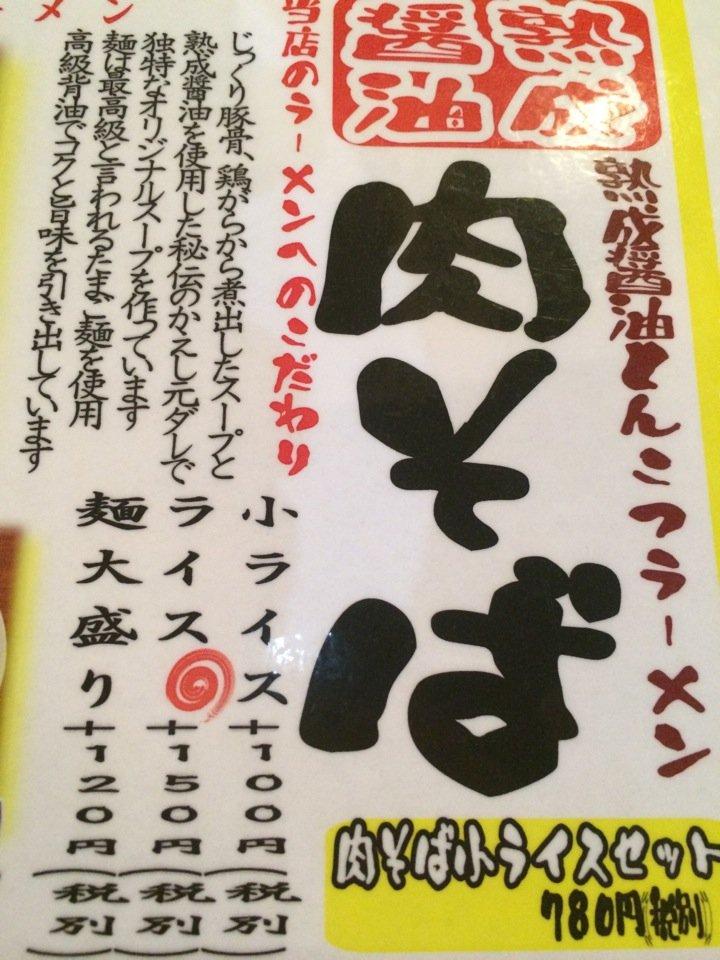 熟成
醤油
熟成醤油とんこつラーメン
肉そば
当店のラーメンへのこだわり
じっくり豚骨、鶏がらから煮出したスープと
熟成醤油を使用した秘伝のかえし元ダレで
独特なオリジナルスープを作っています
麺は最高級と言われるたまご麺を使用
高級背油でコクと旨味を引き出しています
小ライス+100円(税別)
ライス+150円(税別)
麺大盛り+120円(税別)
肉そば小ライスセット
780円(税別)
ン
メ